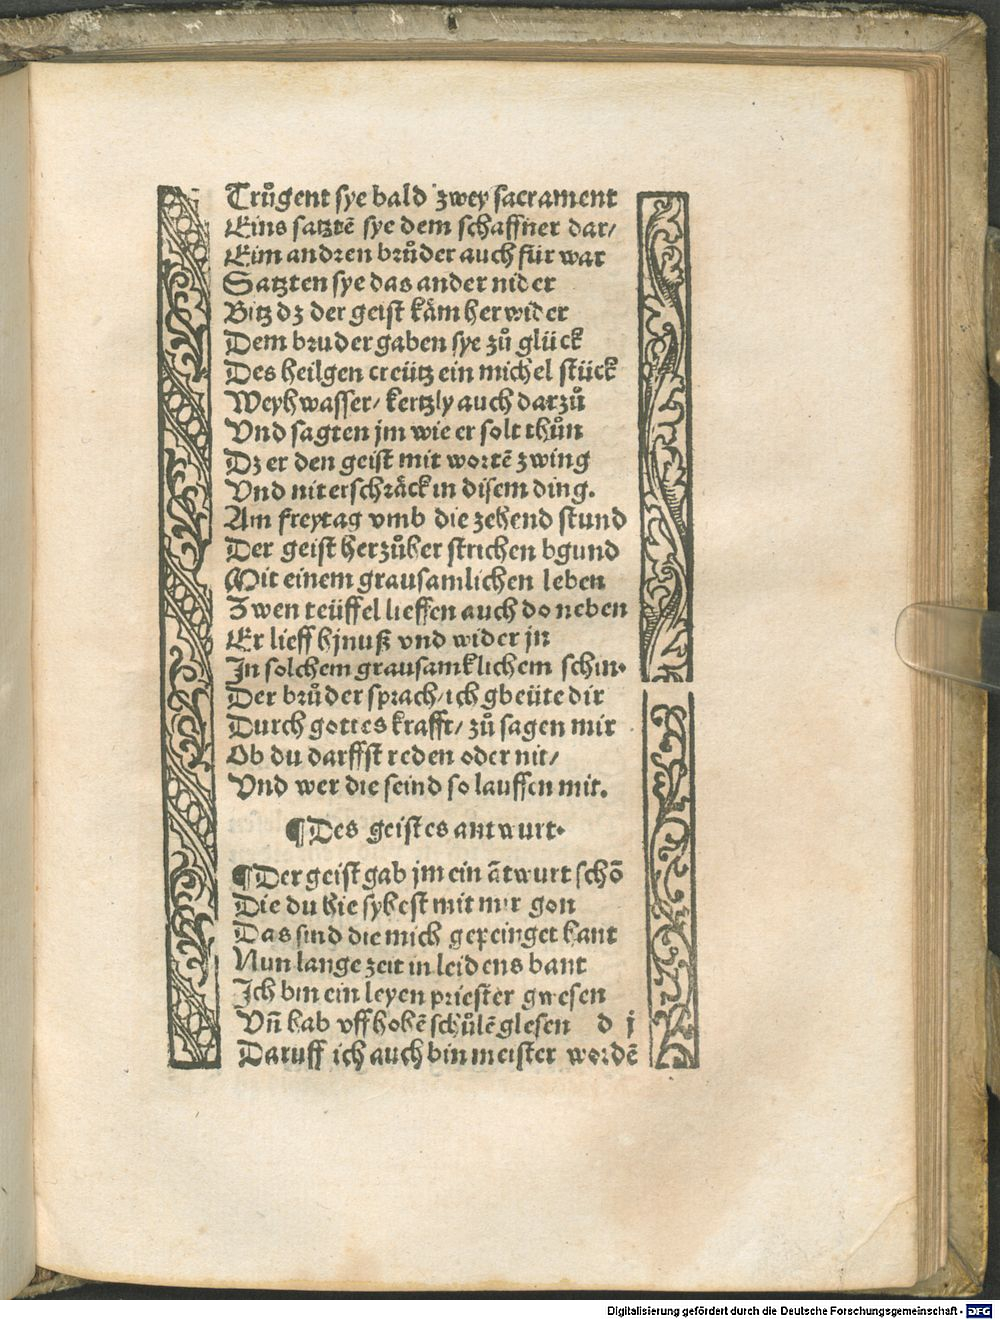 Trůgent sye bald zwey sacrament
Eins satztẽ sye dem schaffner dar/
Eim andren brůder auch für war
Satzten sye das ander nider
Bitz dz der geist käm herwider
Dem bruder gaben sye zů glück
Des heilgen creütz ein michel stück
Weyhwasser/ kertzly auch darzů
Vnd sagten jm wie er solt thůn
Dz er den geist mit wortẽ zwing
Vnd nit erschräck in disem ding.
Am freytag vmb die zehend stund
Der geist herzůher strichen bgund
Mit einem grausamlichen leben
Zwen teüffel lieffen auch do neben
Er lieff hjnuß vnd wider jn
In solchem grausamklichem schin.
Der brůder sprach/ ich gbeüte dir
Durch gottes krafft/ zů sagen mir
Ob du darffst reden oder nit/
Vnd wer die seind so lauffen mit.
¶Des geistes antwurt.
¶Der geist gab jm ein ãtwurt schõ
Die du hie syhest mit mir gon
Das sind die mich gepeinget hant
Nun lange zeit in leidens bant
Ich bin ein leyen priester gwesen
Vñ hab vff hohẽ schůlẽ glesen d j
Daruff ich auch bin meister wordẽ
Digitalisierung gefördert durch die Deutsche Forschungsgemeinschaft - DFG